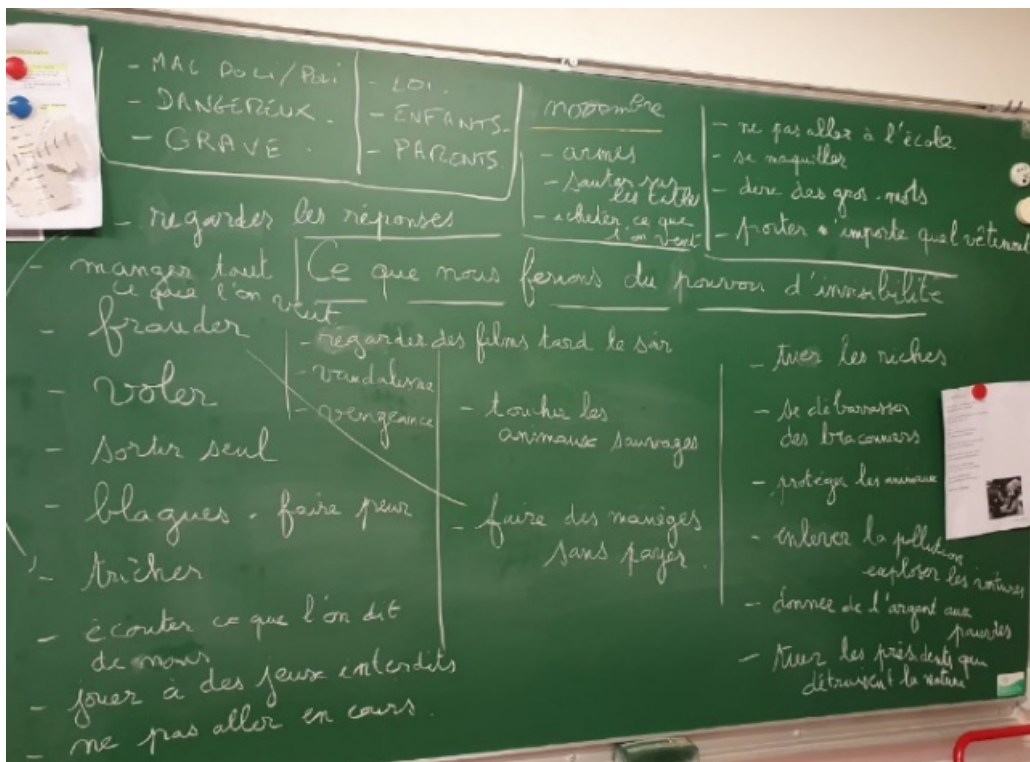 - MAL POLI/Poli
- DANGEREUX.
- GRAVE.
- LOI.
- ENFANTS.
- PARENTS.
- armes
- sauter sur
les tables
- acheter ce que
l'on veut
- ne pas aller à l'école
- se maquiller
- dire des gros-mots
- porter n'importe quel vêtement
- regarder les réponses
Ce que nous ferions du pouvoir d'invisibilité
- manger tout
ce que l'on veut
- frauder
- voler
- sortir seul
- blagues - faire peur
- tricher
- écouter ce que l'on dit
de nous
- jouer à des jeux interdits
- ne pas aller en cours.
- regarder des films tard le soir
- vandalisme
- vengeance
- toucher les
animaux sauvages
- faire des manèges
sans payer.
- tuer les riches
- se débarrasser
des braconniers
- protéger les animaux
- enlever la pollution
exploser les voitures
- donner de l'argent aux
pauvres
- tuer les présidents qui
détruisent la nature